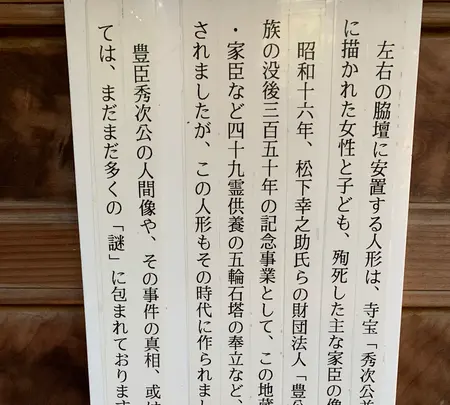 左右の脇壇に安置する人形は、寺宝「秀次公並
に描かれた女性と子ども、殉死した主な家臣の像
昭和十六年、松下幸之助氏らの財団法人「豊公
族の没後三百五十年の記念事業として、この地蔵
・家臣など四十九霊供養の五輪石塔の奉立など、
されましたが、この人形もその時代に作られまし
豊臣秀次公の人間像や、その事件の真相、或は
ては、まだまだ多くの「謎」に包まれております